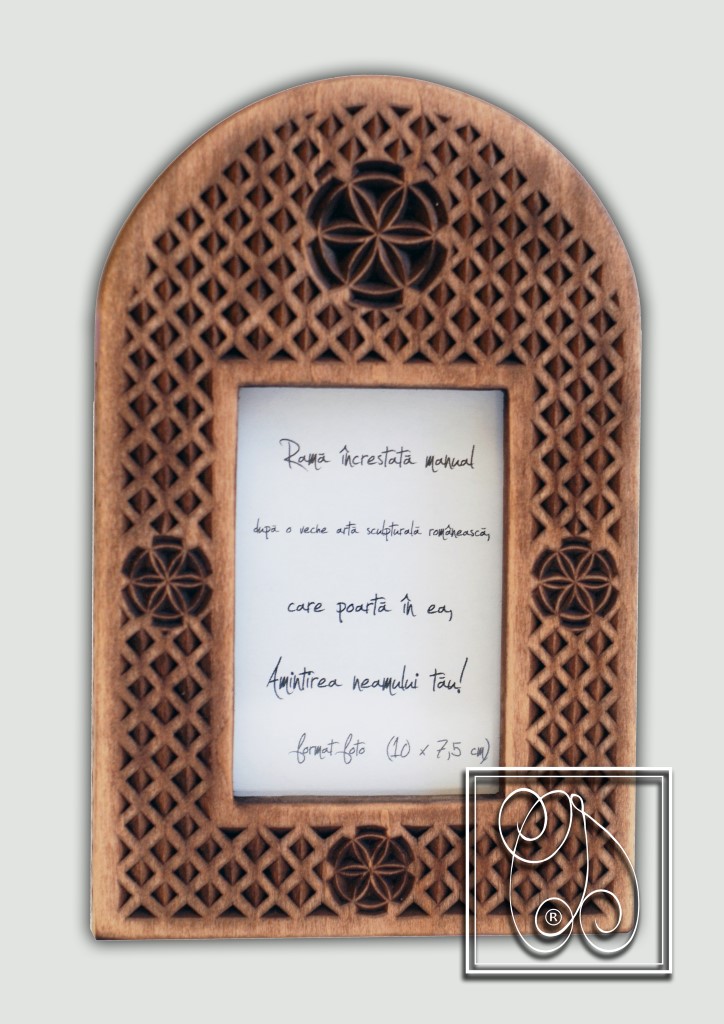 Ramă încrestată manual
după o veche artă sculpturală românească,
care poartă în ea,
Amintirea neamului tău!
format foto (10 x 7,5 cm)
®